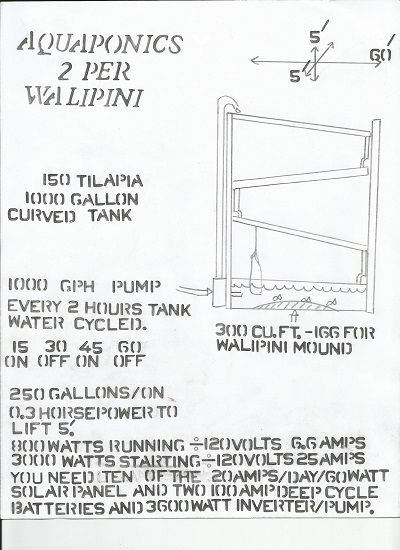 AQUAPONICS
2 PER
WALIPINI
5'
60'
5'
150 TILAPIA
1000 GALLON
CURVED TANK
1000 GPH PUMP
EVERY 2 HOURS TANK
WATER CYCLED.
300 CU.FT. -166 FOR
WALIPINI MOUND
15 30 45 60
ON OFF ON OFF
250 GALLONS/ON
0.3 HORSEPOWER TO
LIFT 5'.
800 WATTS RUNNING ÷120VOLTS 6.6 AMPS
3000 WATTS STARTING÷120VOLTS 25 AMPS
YOU NEED TEN OF THE 20AMPS/DAY/60WATT
SOLAR PANEL AND TWO 100AMP DEEP CYCLE
BATTERIES AND 3600WATT INVERTER/PUMP.